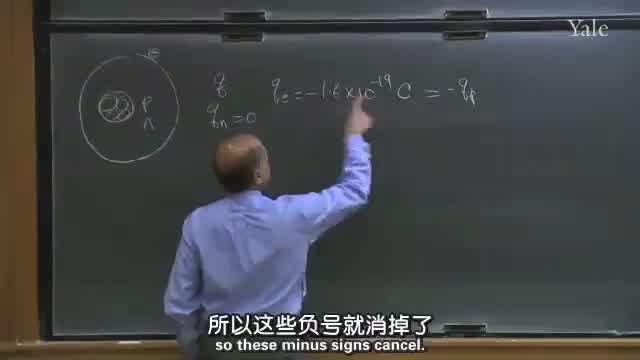 Yale
-e
P
n
q
q_n = 0
q_e = -1.6 × 10^-19 C = -q_p
所以这些负号就消掉了
so these minus signs cancel.